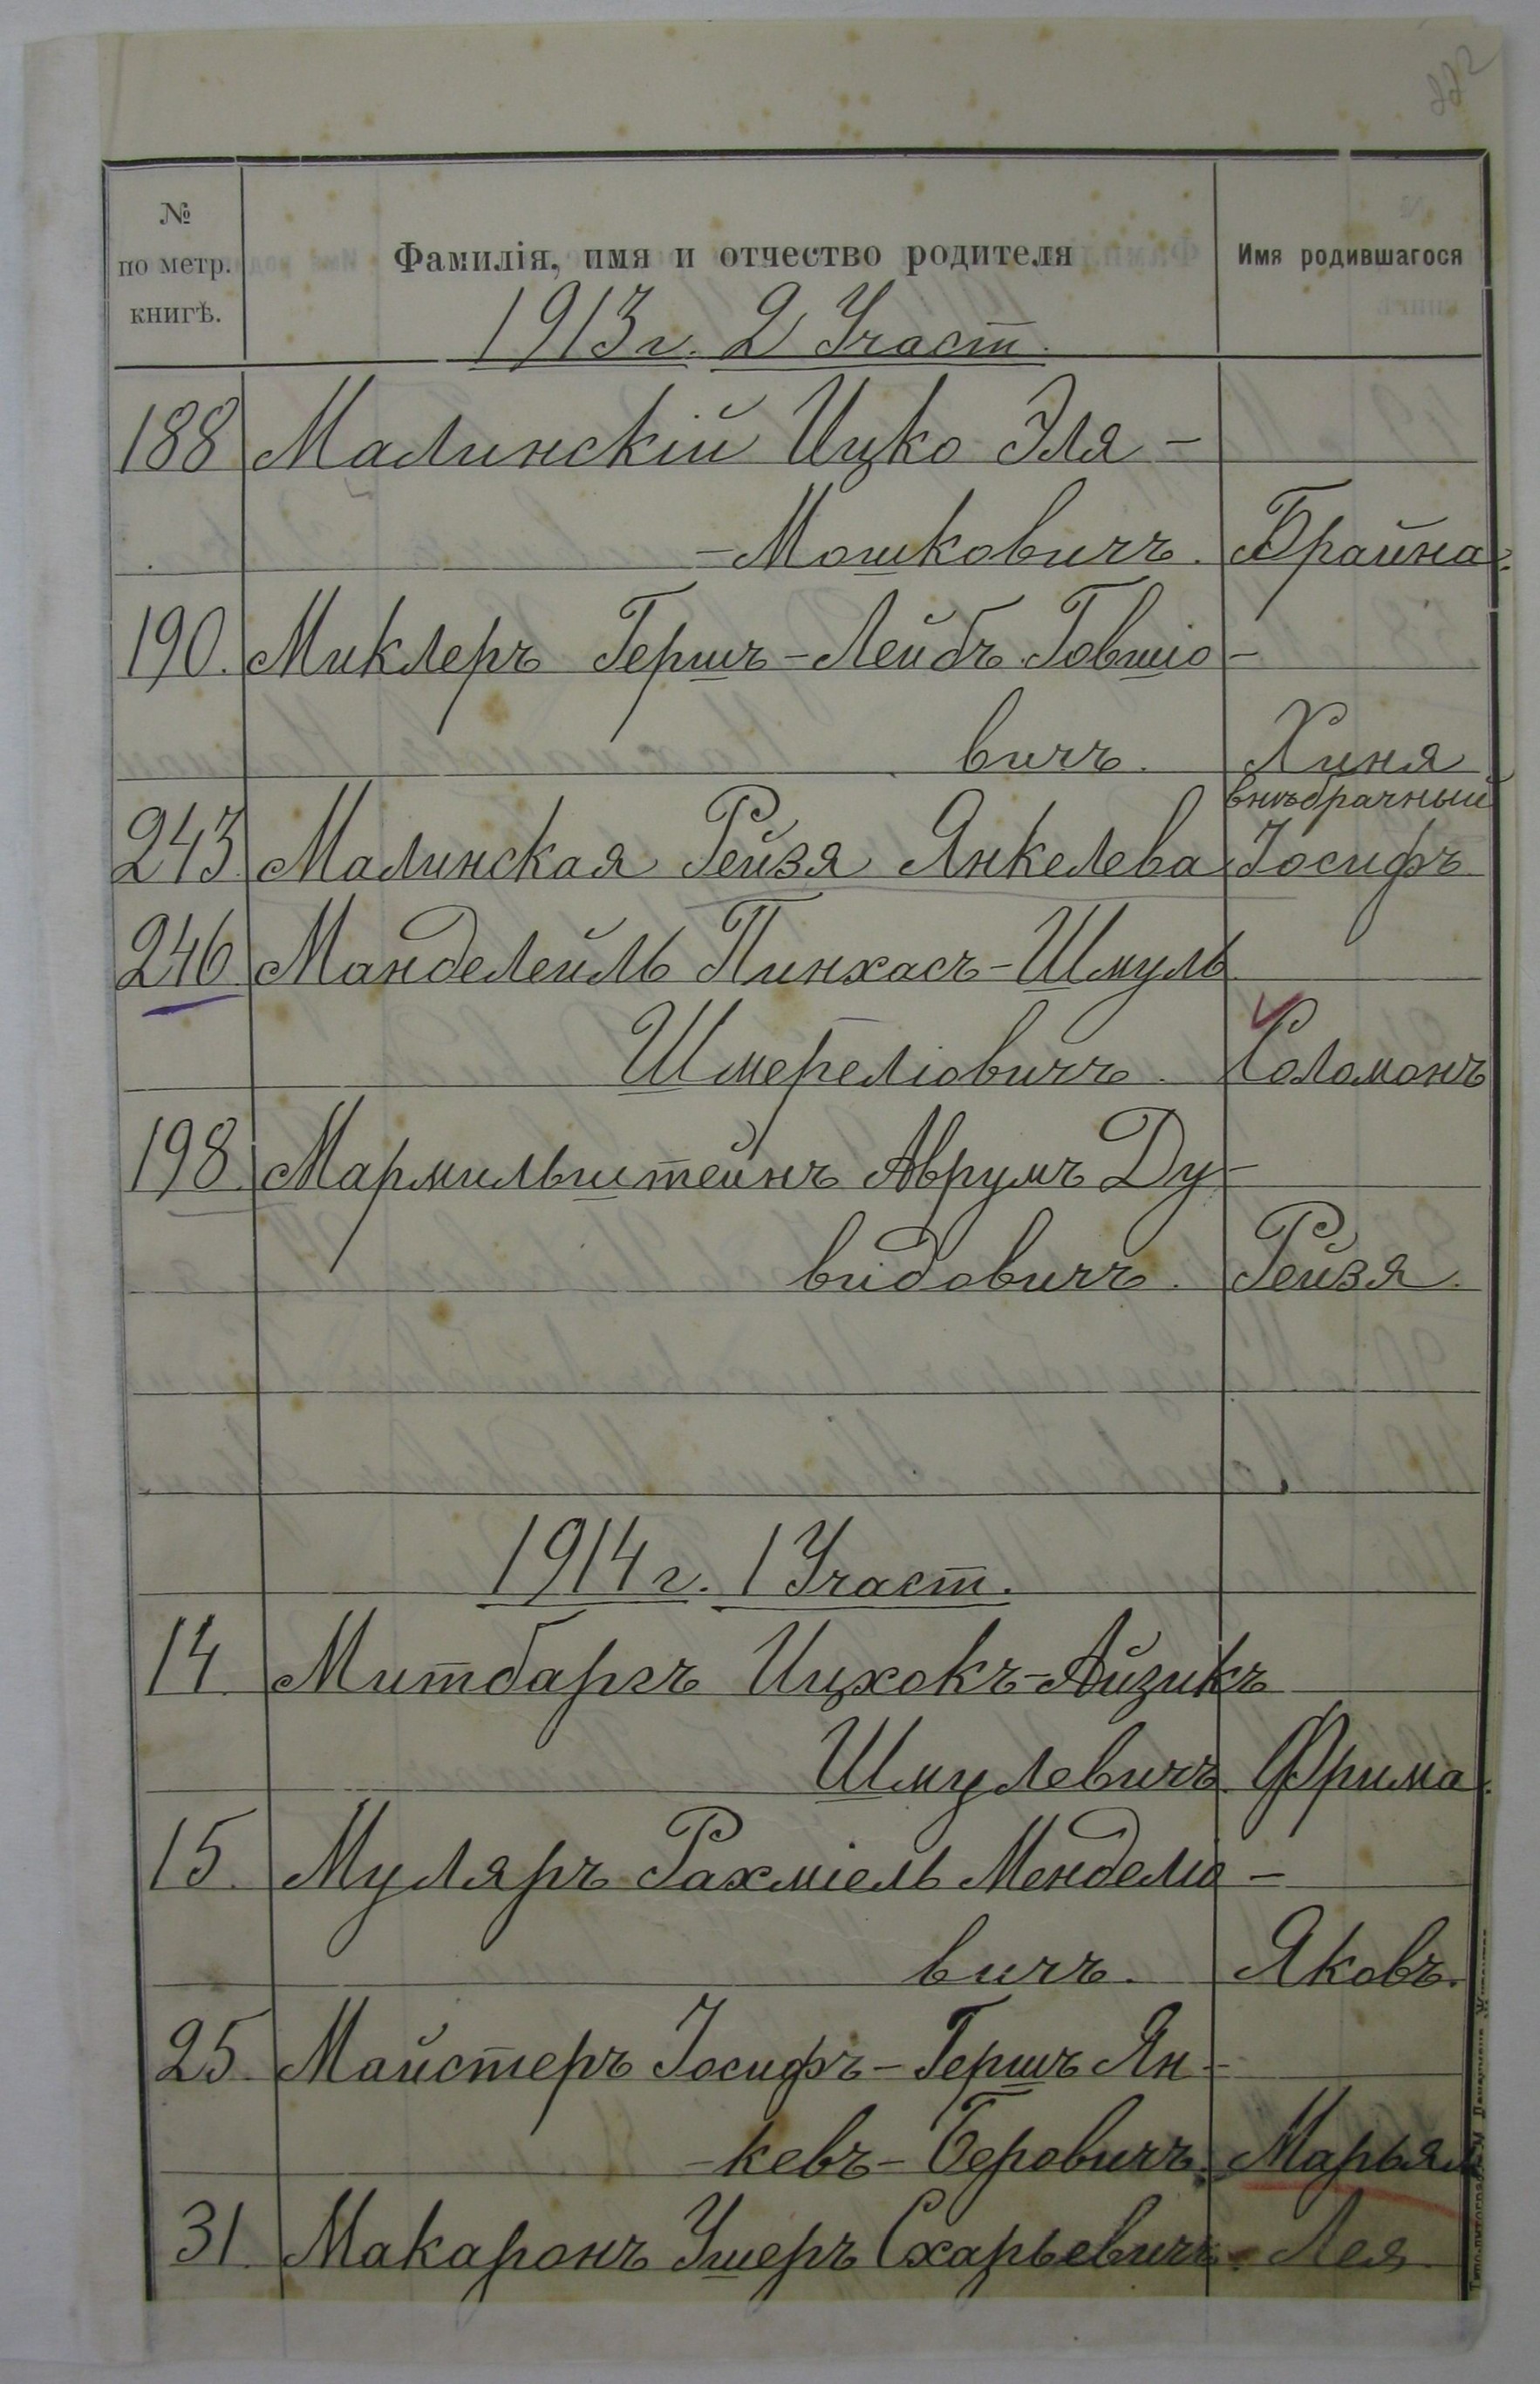 №
по метр.
книгѣ.
Фамилія, имя и отчество родителя
Имя родившагося
1913 г. 2 Участ.
188 Малинскій Ицко Эля-
-Мошковичъ. Брайна.
190. Миклеръ Гершъ-Лейбъ Говшіо-
вичъ. Хиня
внѣбрачный
243 Малинская Рейзя Янкелева Іосифъ
246 Манделейль Пинхасъ-Шмуль
Шмереліовичъ. Соломонъ
198. Мармильштейнъ Аврумъ Ду-
видовичъ. Рейзя.
1914 г. 1 Участ.
14 Митбаргъ Ицхокъ-Айзикъ
Шмулевичъ. Фрима.
15. Муляръ Рахміель Менделіо-
вичъ. Яковъ.
25. Майстеръ Іосифъ-Гершъ Ян-
-кевъ-Беровичъ. Марьям
31. Макаронъ Ушеръ Схарьевичъ. Лея.